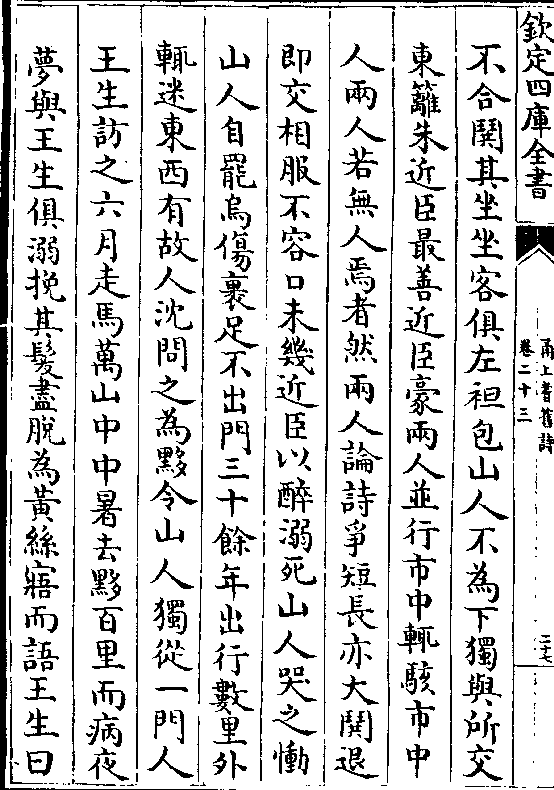 欽定四庫全書
甬上耆舊詩
卷二十三
二十七
不合鬨其坐坐客俱左袒包山人不為下獨與所交
東籬朱近臣最善近臣豪兩人並行市中輒駭市中
人兩人若無人焉者然兩人論詩爭短長亦大鬨退
即交相服不容口未幾近臣以醉溺死山人哭之慟
山人自罷烏傷裹足不出門三十餘年出行數里外
輒迷東西有故人沈問之為黟令山人獨從一門人
王生訪之六月走馬萬山中中暑去黟百里而病夜
夢與王生俱溺挽其髮盡脫為黃絲寤而語王生曰